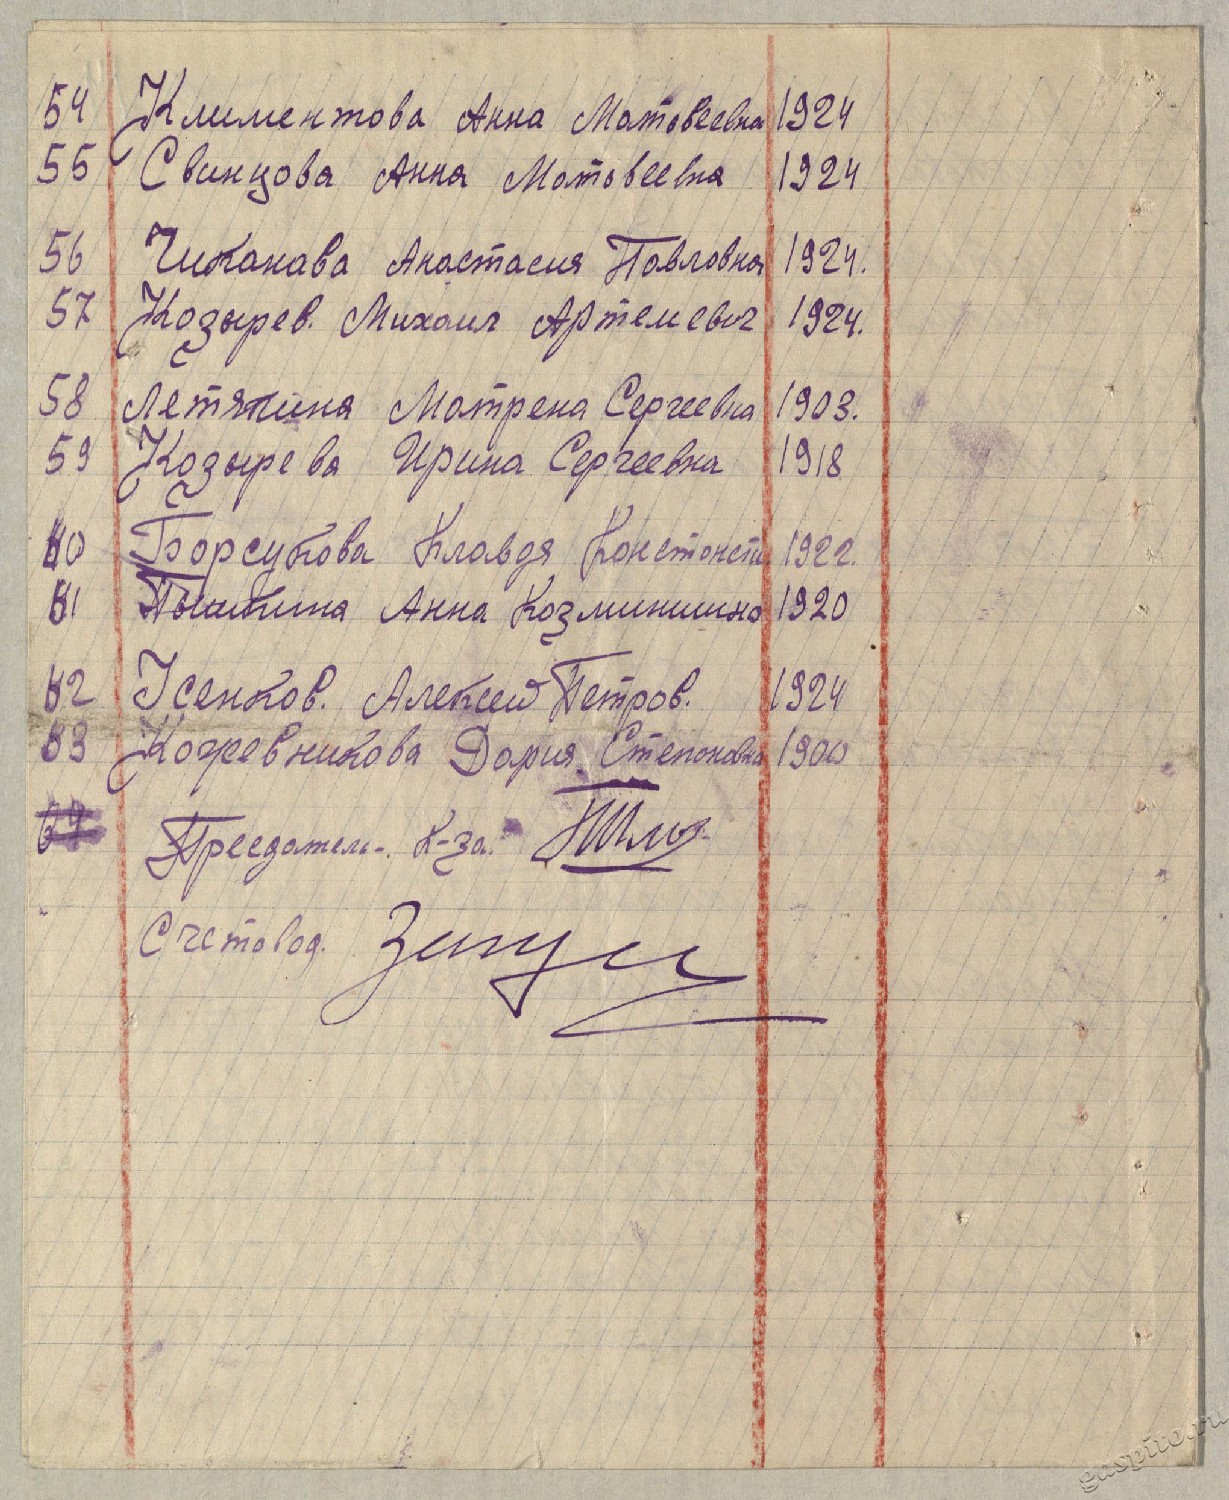 54 Климентова Анна Матвеевна 1924
55 Свинцова Анна Матвеевна 1924
56 Чиканава Анастасия Павловна 1924.
57 Козырев. Михаил Артемевич 1924.
58 Летяпина Матрена Сергеевна 1903.
59 Козырева Ирина Сергеевна 1918
60 Борсукова Клавдя Констонсти 1922.
61 Анна Козминишно 1920
62 Усенков. Алексей Петров. 1924
63 Кожевникова Дария. Степоновна 1900
64
Преедатель-. К-за.
Счетовод.
gaspito.ru